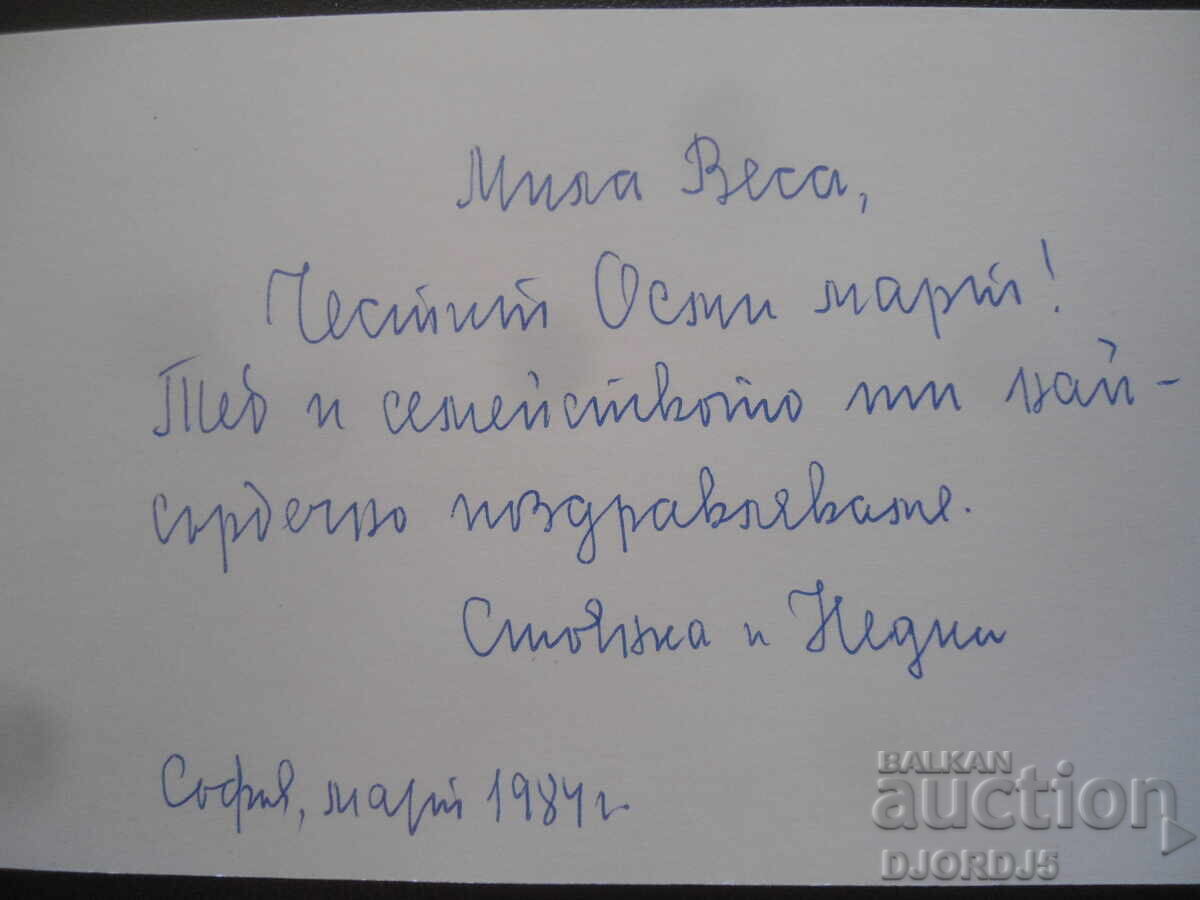 Мила Веса,
Честит Осми март!
Теб и семейството ти най-
сърдечно поздравяваме.
Стоянка и Недки
София, март 1984 г.
BALKAN
auction
DJORDJ5